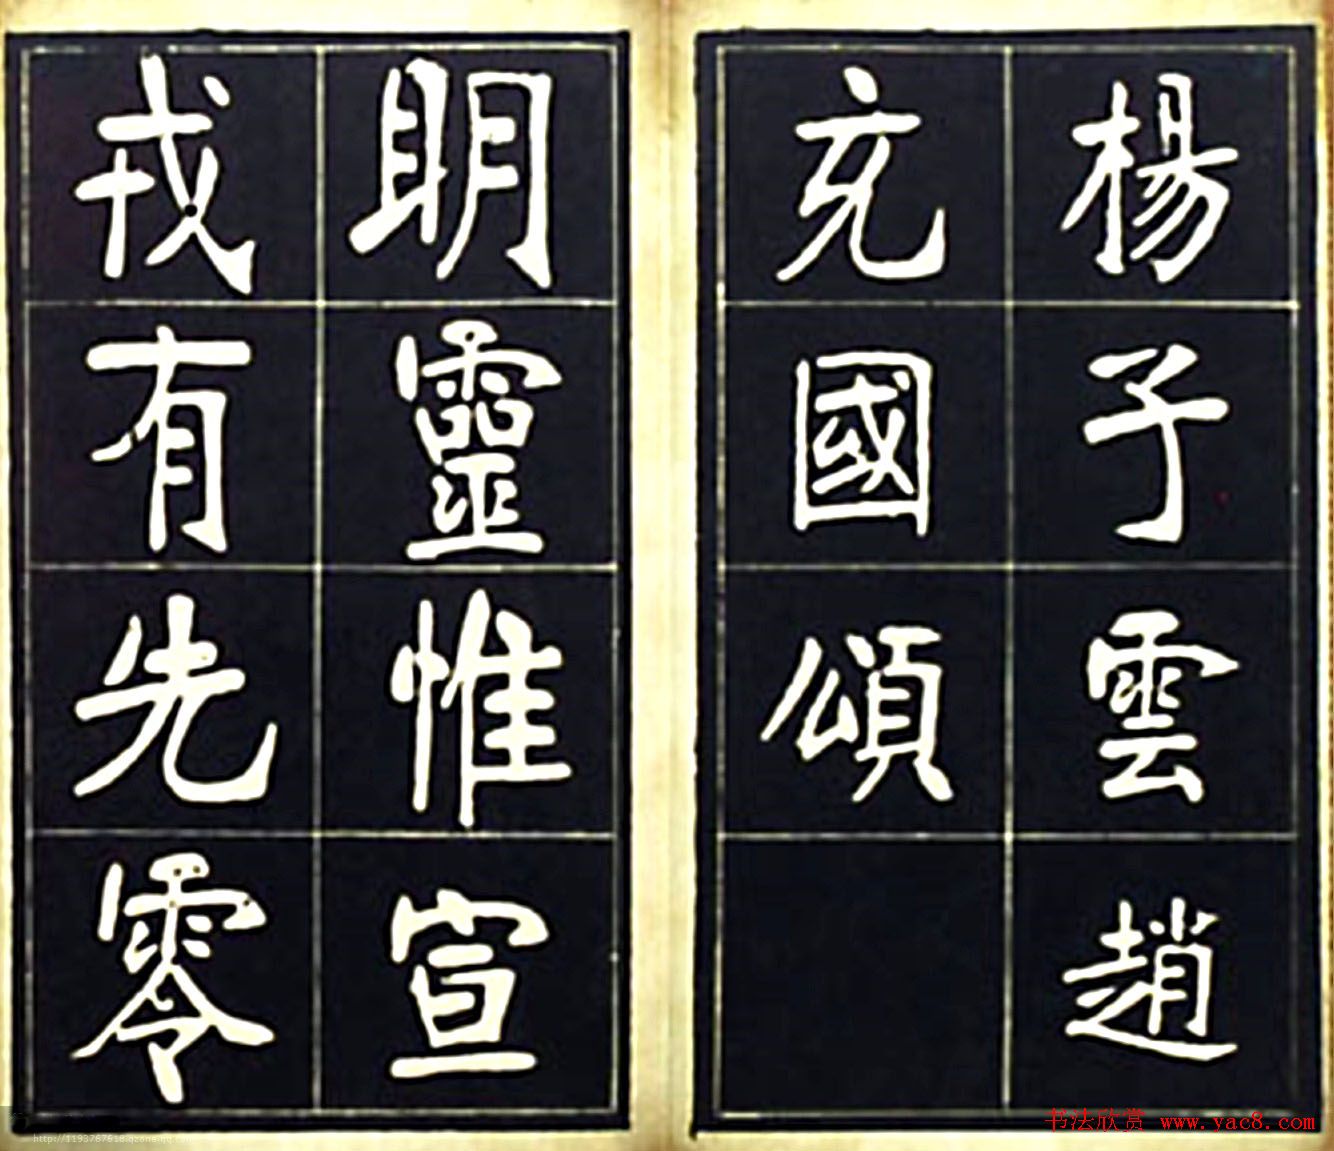 楊子雲趙
充國頌
明靈惟宣
戎有先零
书法欣赏 www.yac8.com
http://1193767618.qzone.qq.com